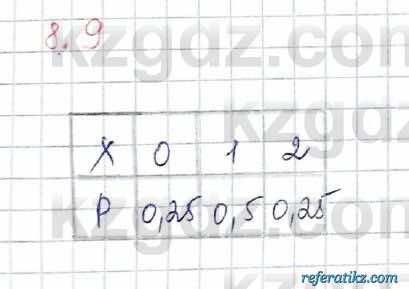 8.9
X 0 1 2
P 0,25 0,5 0,25
kzgdz.com
referatikz.com